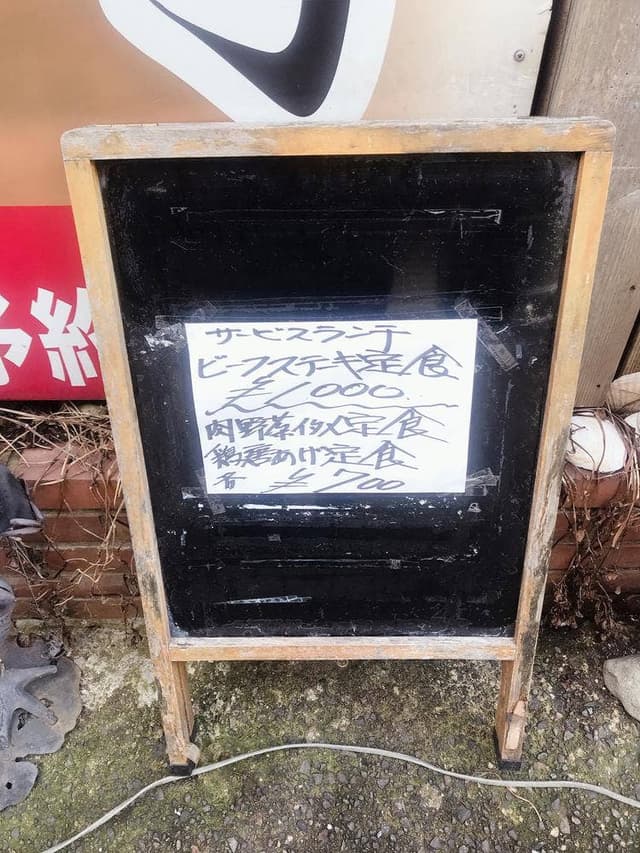 予約
サービスランチ
ビーフステーキ定食
¥1000
肉野菜イタメ定食
鶏唐あげ定食
各 ¥700